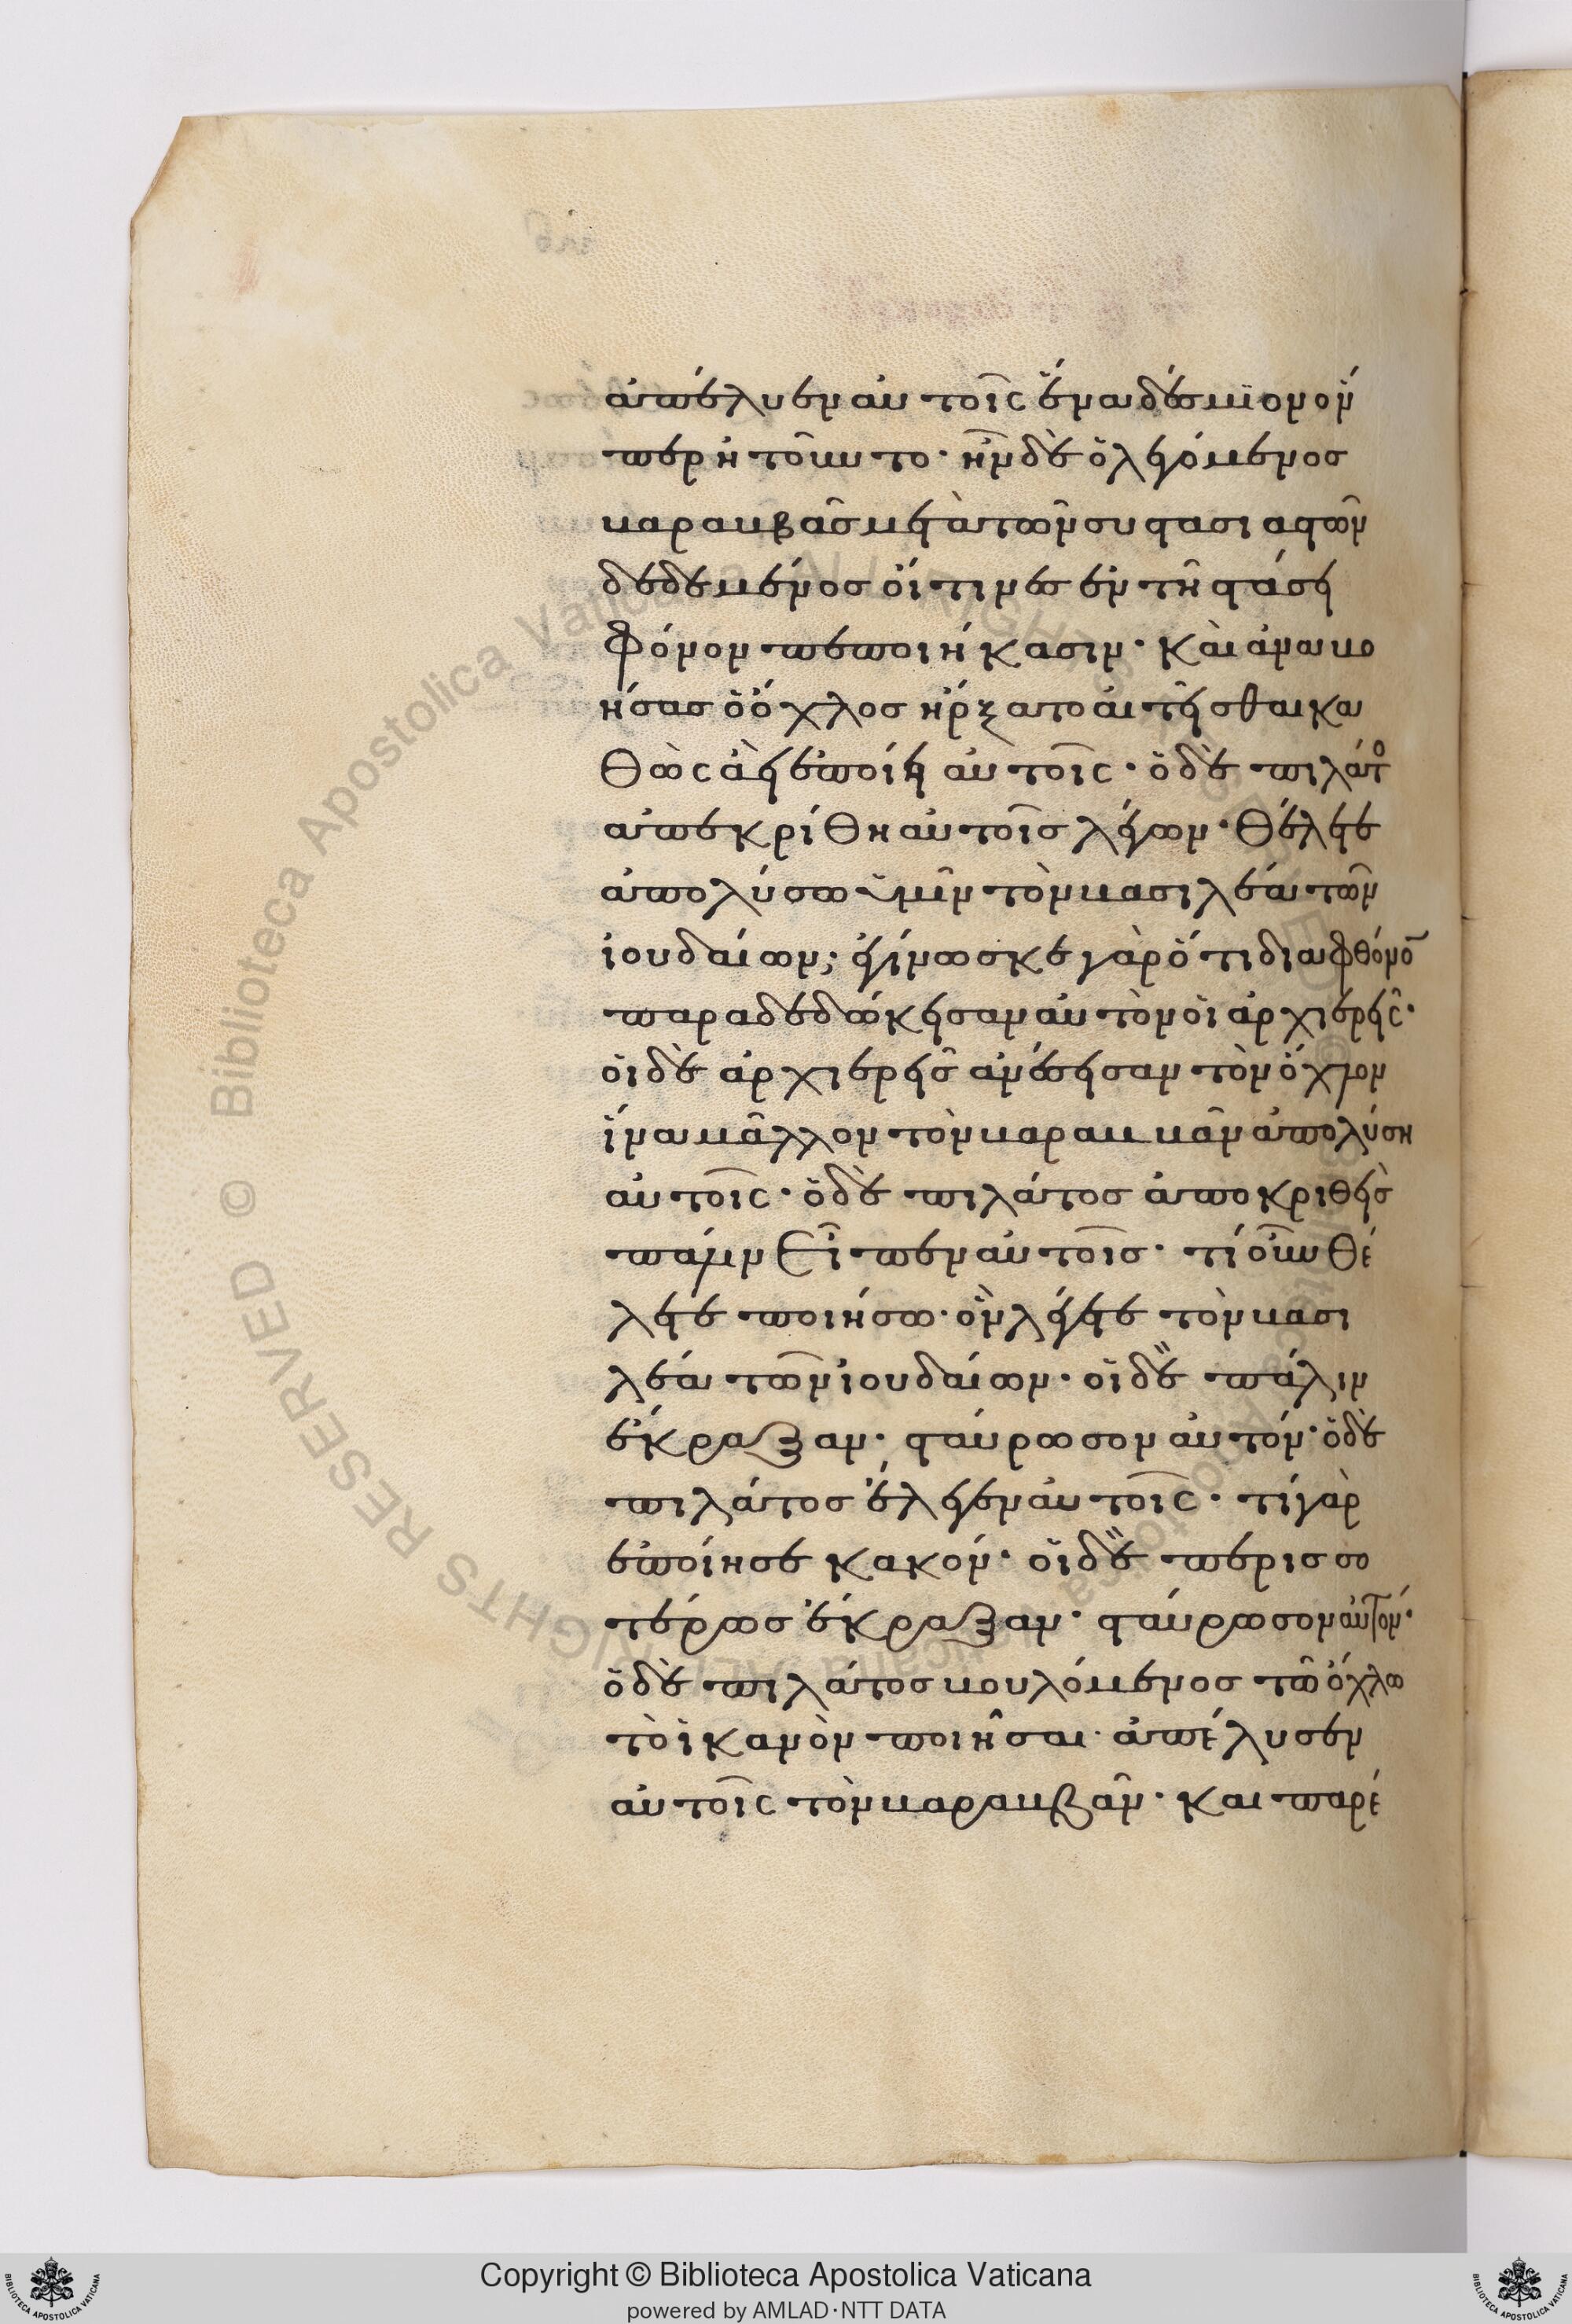 ἀπέλυεν αὐτοῖς ἕνα δέσμϊον ὅν
περ ἠτοῦντο· ἦν δὲ ὁ λεγόμενος
βαραββᾶς μετὰ τῶν συστασιαστῶν
δεδεμένος οἵτινες ἐν τῆ στάσει
φόνον πεποιήκασιν· καὶ ἀναβο
ήσας ὁ ὄχλος ἤρξατο αἰτεῖσθαι κα
θὼς ἀεὶ ἐποίει αὐτοῖς· ὁ δὲ πιλάτο
ἀπεκρίθη αὐτοῖς λέγων· θέλετε
ἀπολύσω ὑμῖν τὸν βασιλέα τῶν
ἰουδαίων; ἐγίνωσκε γὰρ ὅτι δια φθόνο
παραδεδώκεισαν αὐτὸν οἱ ἀρχιερεῖς·
οἱ δὲ ἀρχιερεῖς ἀνέσεισαν τὸν ὄχλον
ἵνα μᾶλλον τὸν βαραββᾶν ἀπολύση
αὐτοῖς· ὁ δὲ πιλάτος ἀποκριθεὶς
πάλιν εἶπεν αὐτοῖς· τί οὖν θέ
λετε ποιήσω· ὃν λέγετε τὸν βασι
λέα τῶν ἰουδαίων· οἱ δὲ πάλιν
ἔκραξαν· σταύρωσον αὐτόν· ὁ δὲ
πιλάτος ἔλεγεν αὐτοῖς· τί γὰρ
ἐποίησε κακόν· οἱ δὲ περισσο
τέρως ἔκραξαν· σταύρωσον αὐτόν·
ὁ δὲ πιλάτος βουλόμενος τῶ ὄχλω
τὸ ἱκανὸν ποιῆσαι· ἀπέλυσεν
αὐτοῖς τὸν βαραββᾶν· και παρέ
Copyright © Biblioteca Apostolica Vaticana
powered by AMLAD·NTT DATA